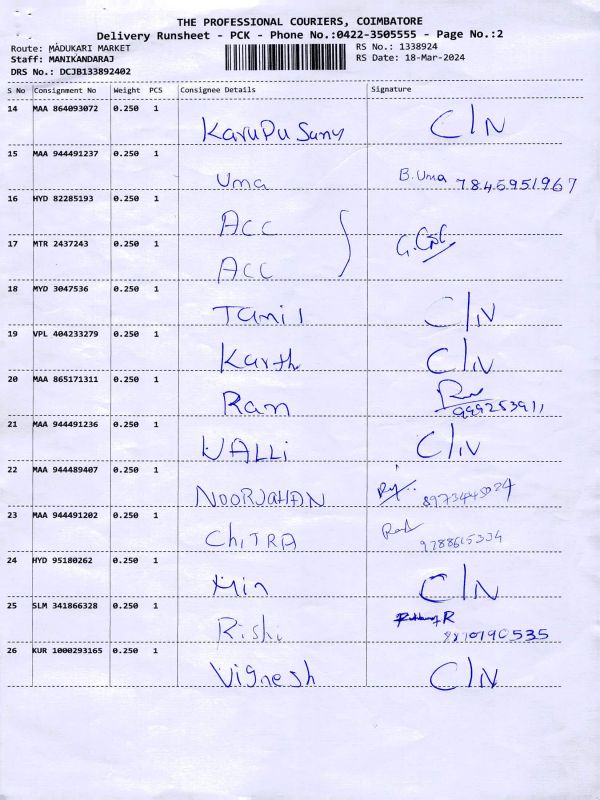 THE PROFESSIONAL COURIERS, COIMBATORE
Delivery Runsheet - PCK - Phone No.:0422-3505555 - Page No.:2
Route: MADUKARI MARKET RS No.: 1338924
Staff: MANIKANDARAJ RS Date: 18-Mar-2024
DRS No.: DCJB133892402
S No Consignment No Weight PCS Consignee Details Signature
14 MAA 864093072 0.250 1 KaruPu Samy C/N
15 MAA 944491237 0.250 1 Uma B.Uma 7845951967
16 HYD 82285193 0.250 1 ACC
17 MTR 2437243 0.250 1 ACC
18 MYD 3047536 0.250 1 Tamil C/N
19 VPL 404233279 0.250 1 Karth C/N
20 MAA 865171311 0.250 1 Ram 999253911
21 MAA 944491236 0.250 1 VALLi C/N
22 MAA 944489407 0.250 1 NOORJAHAN
23 MAA 944491202 0.250 1 ChiTRA
24 HYD 95180262 0.250 1 C/N
25 SLM 341866328 0.250 1 Rishi
26 KUR 1000293165 0.250 1 Vignesh C/N